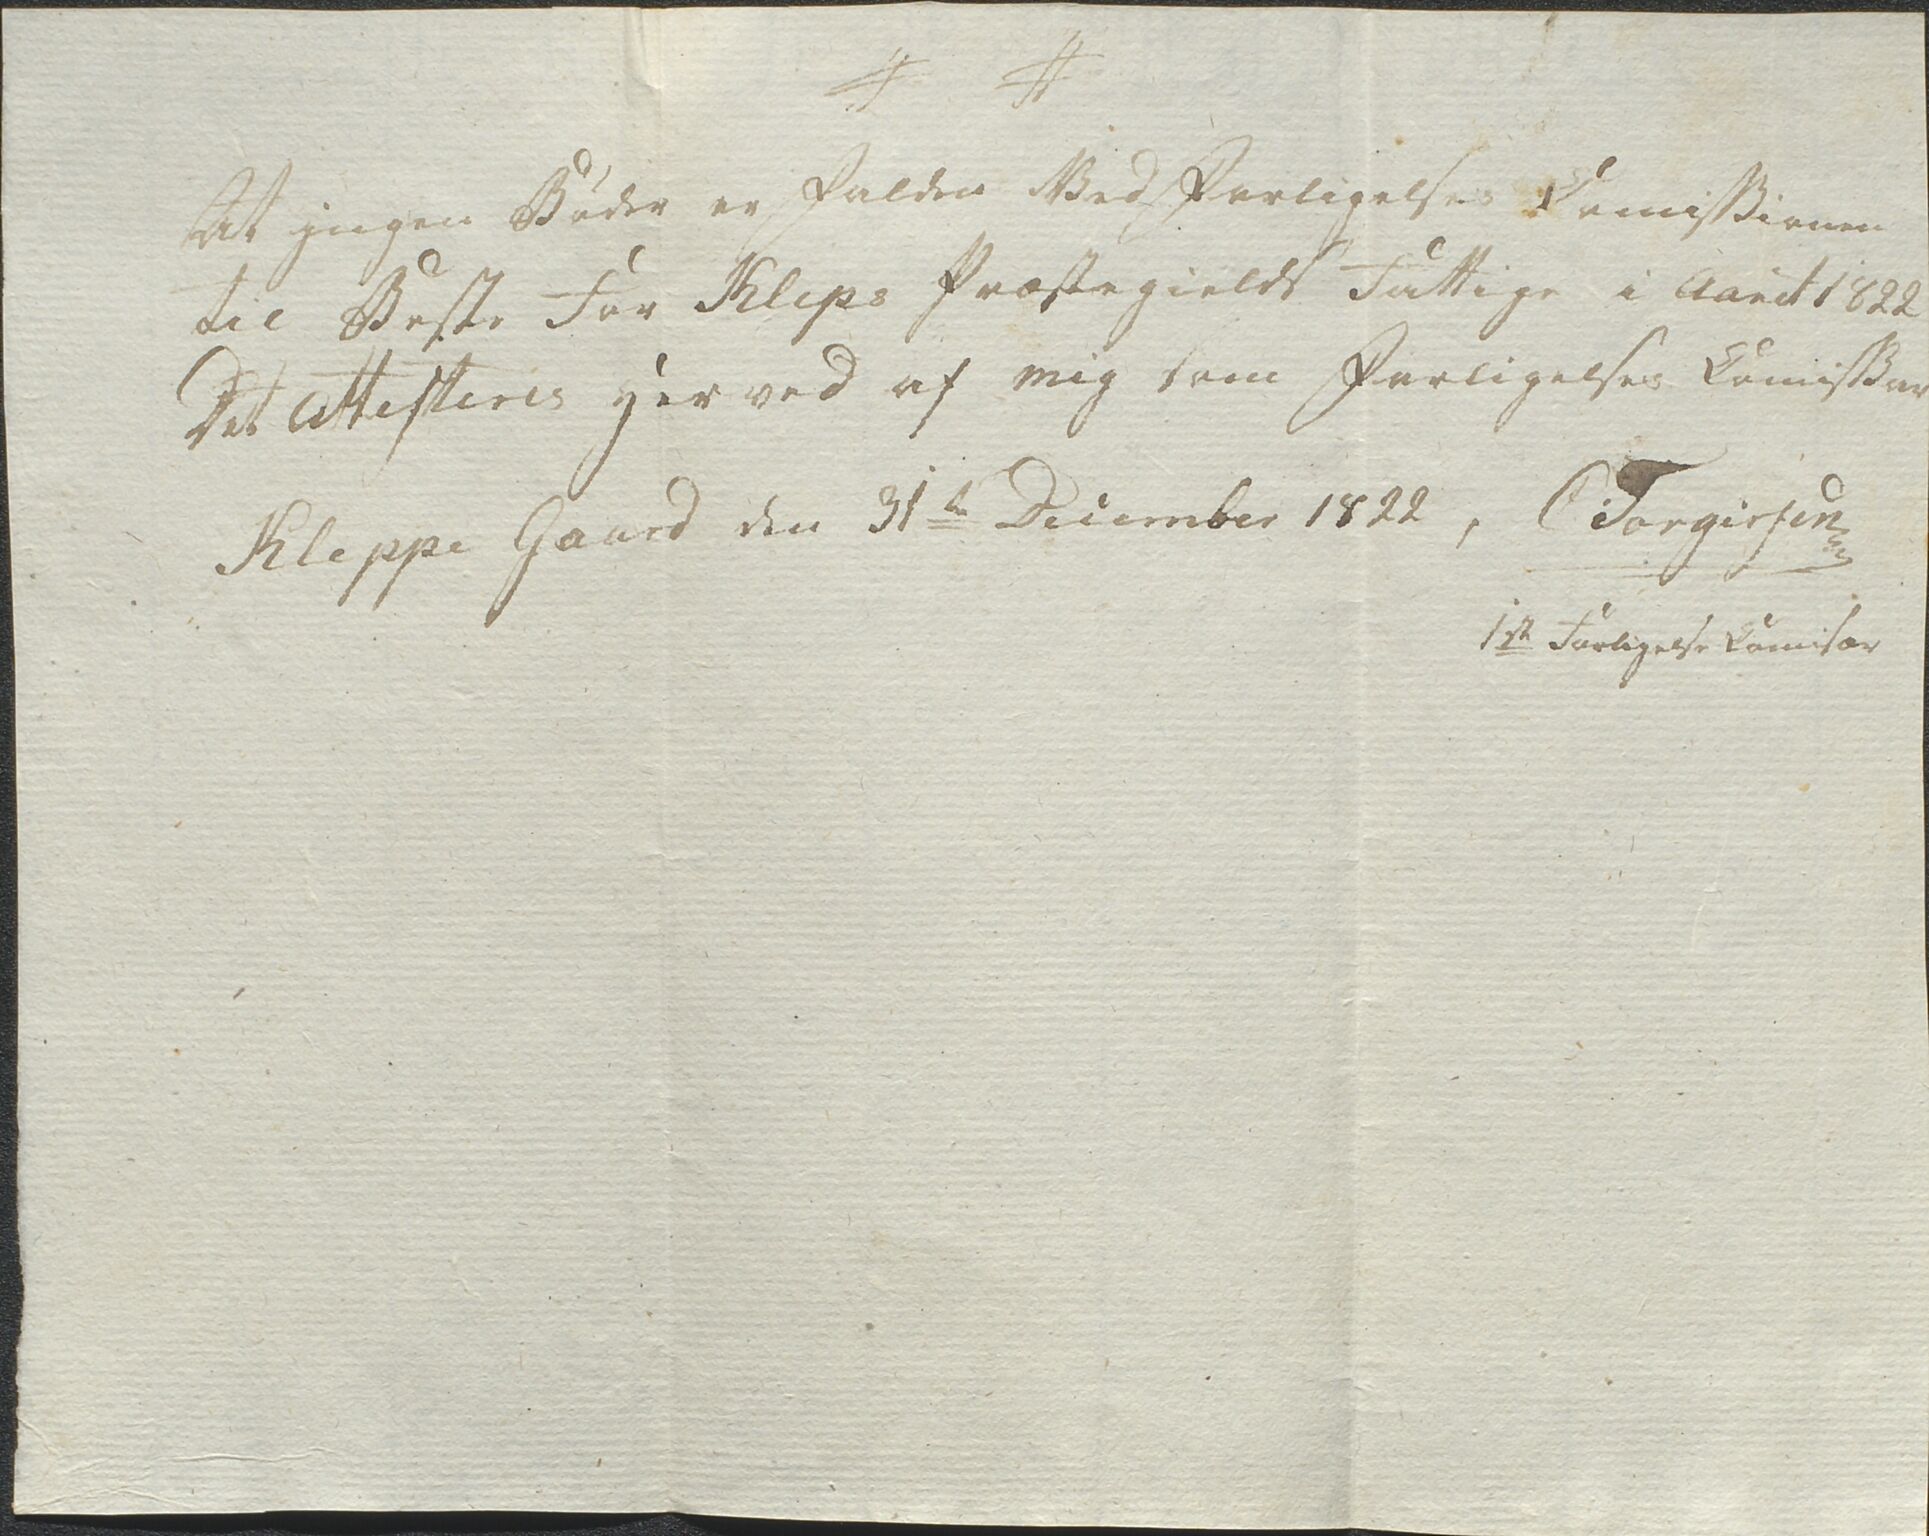 At jngen Bøder er falden Ved Forligelses Comisßionen
til Beste For Kleps Præstegields Fattige i Aaret 1822
Det Attesteres Herved af mig som Forligelses Comisßær
Kleppe Gaard den 31te December 1822, C Torgersen
1ste Forligelse Comisær